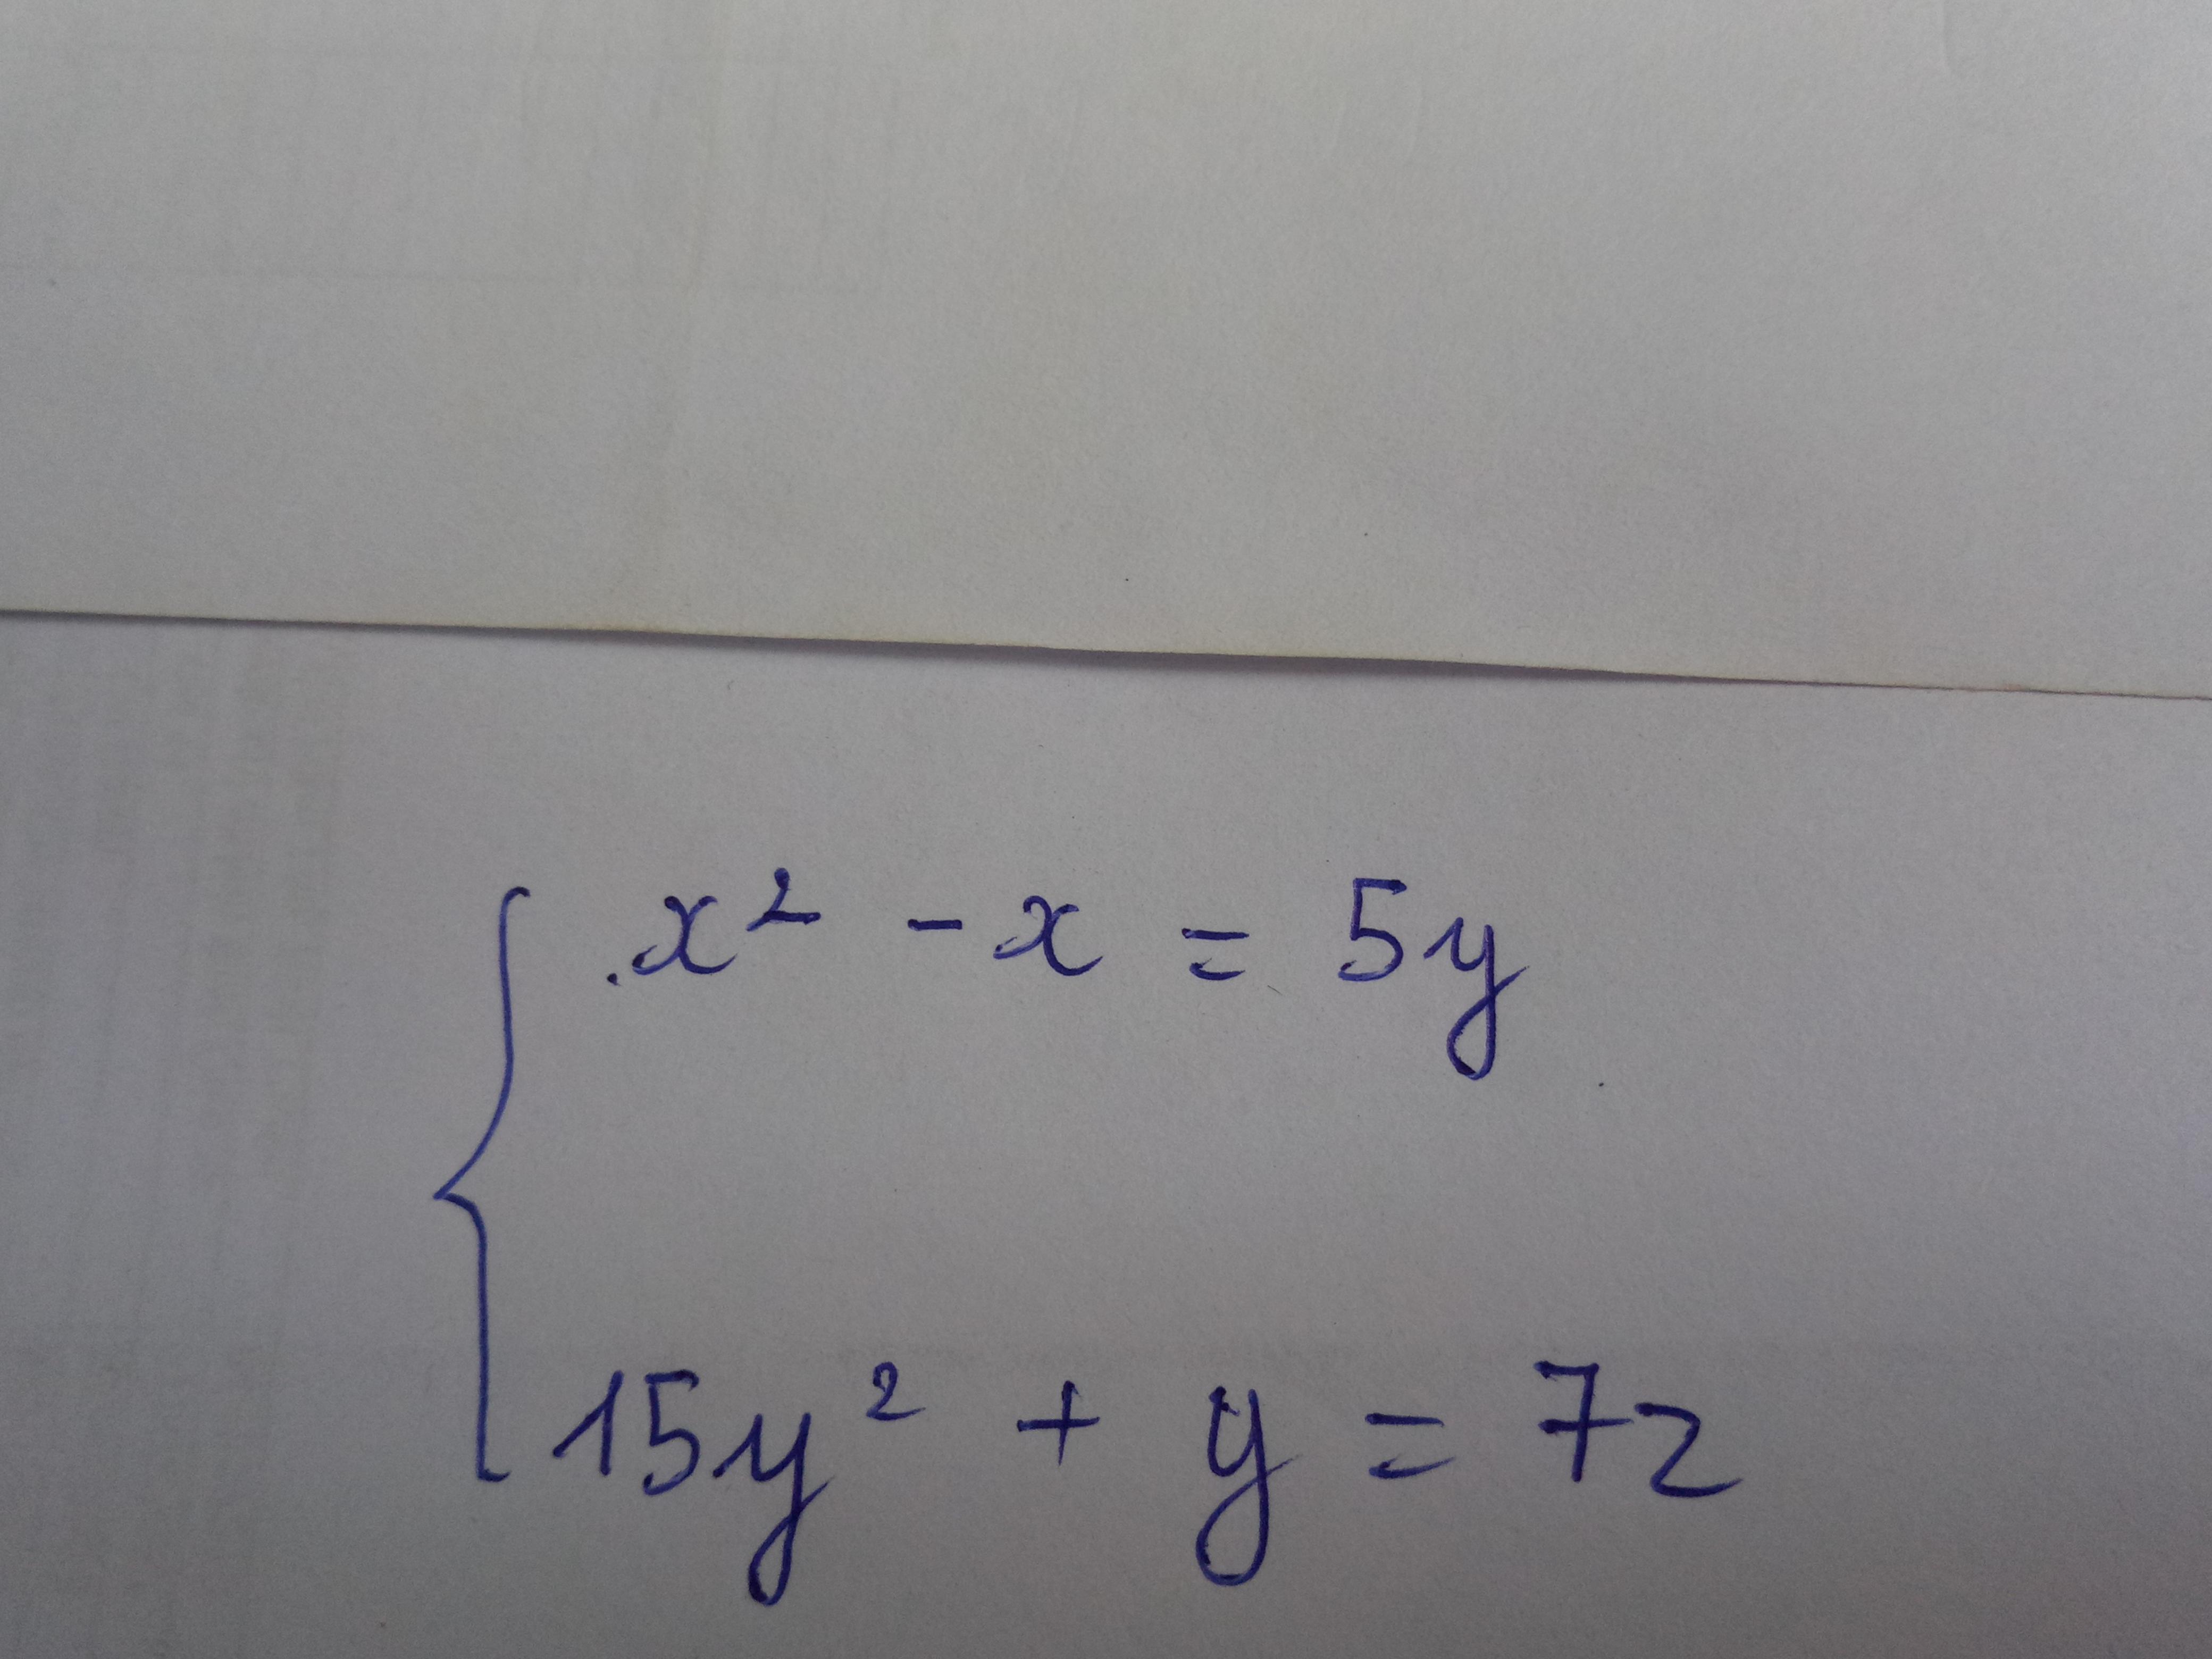 x² - x = 5y
15y² + y = 7z